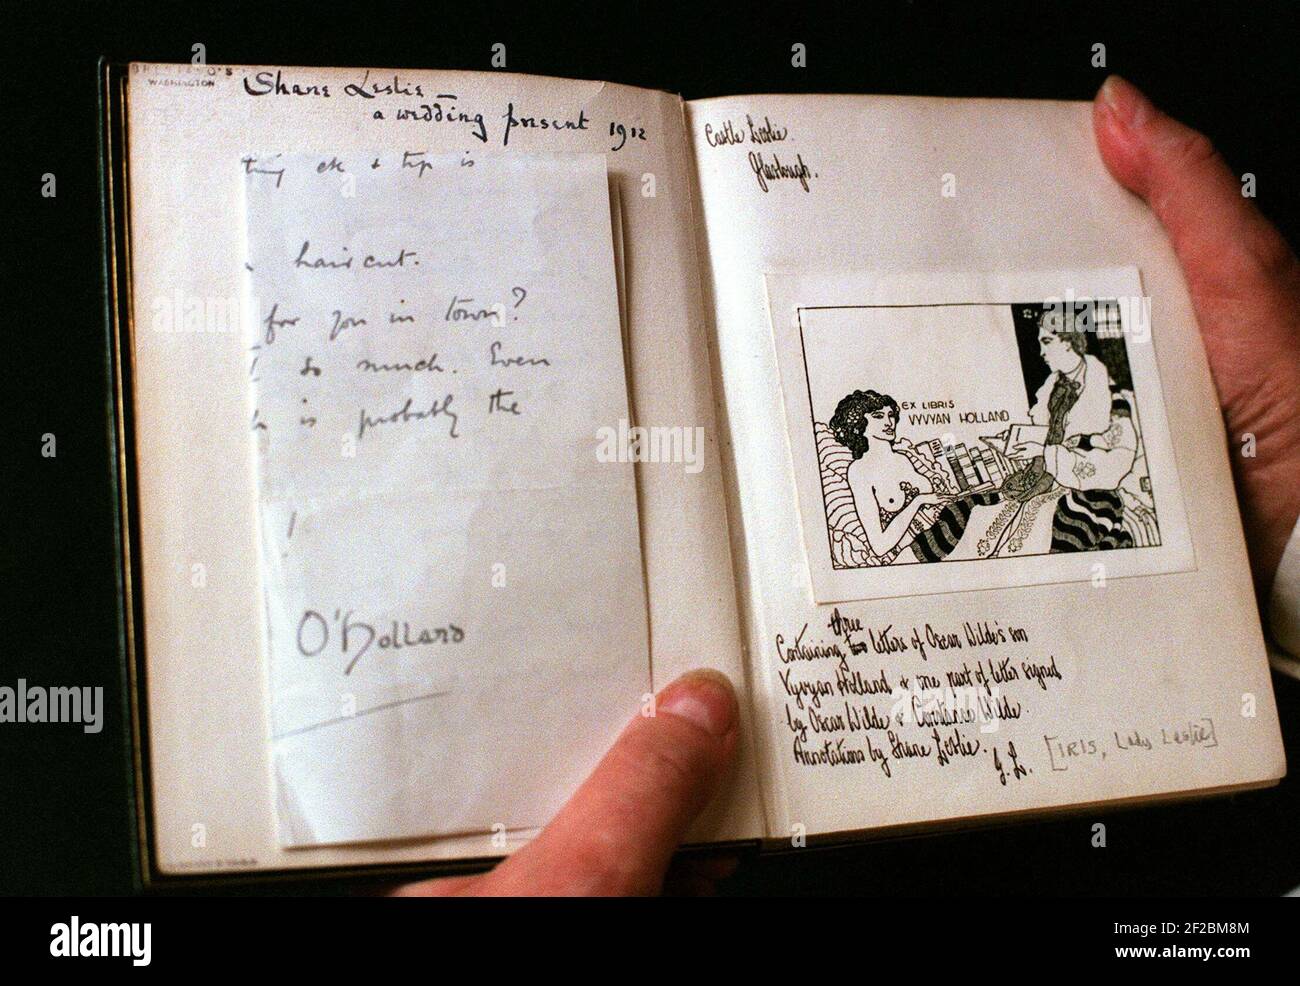 BRENTANO'S
WASHINGTON
Shane Leslie –
a wedding present 1912
ck & tip is
haircut.
for you in town?
I so much. Even
is probably the
!
O'Hollard
Castle Leslie.
Glaslough.
EX LIBRIS
VYVYAN HOLLAND
three
Containing two letters of Oscar Wilde's son
Vyvyan Holland & one part of letter signed
by Oscar Wilde & Constance Wilde.
Annotations by Shane Leslie.
I. L. [IRIS, Lady Leslie]
alamy
Image ID: 2F2BM8M
www.alamy.com